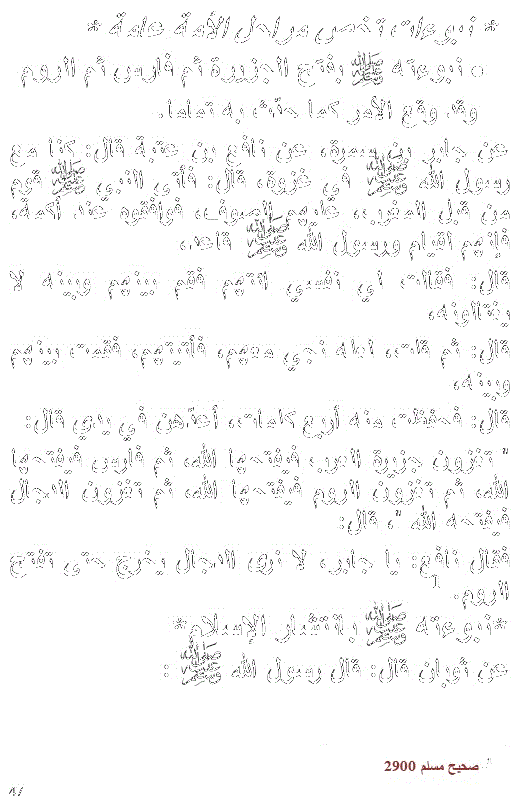 * نبوءات تخص مراحل الأمة عامة *
○ نبوءته ﷺ بفتح الجزيرة ثم فارس ثم الروم
وقد وقع الأمر كما حدّث به تماما.
عن جابر بن سمرة، عن نافع بن عتبة قال: كنا مع
رسول الله ﷺ في غزوة، قال: فأتى النبي ﷺ قوم
من قبل المغرب، عليهم الصوف، فوافقوه عند أكمة،
فإنهم لقيام ورسول الله ﷺ قاعد،
قال: فقالت لي نفسي ائتهم فقم بينهم وبينه لا
يغتالونه،
قال: ثم قلت، لعله نجي معهم، فأتيتهم، فقمت بينهم
وبينه،
قال: فحفظت منه أربع كلمات، أعدّهن في يدي قال:
" تغزون جزيرة العرب فيفتحها الله، ثم فارس فيفتحها
الله، ثم تغزون الروم فيفتحها الله، ثم تغزون الدجال
فيفتحه الله "، قال:
فقال نافع: يا جابر، لا نرى الدجال يخرج حتى تفتح
الروم. 1
*نبوءته ﷺ بانتشار الإسلام*
عن ثوبان قال: قال رسول الله ﷺ :
صحيح مسلم 2900